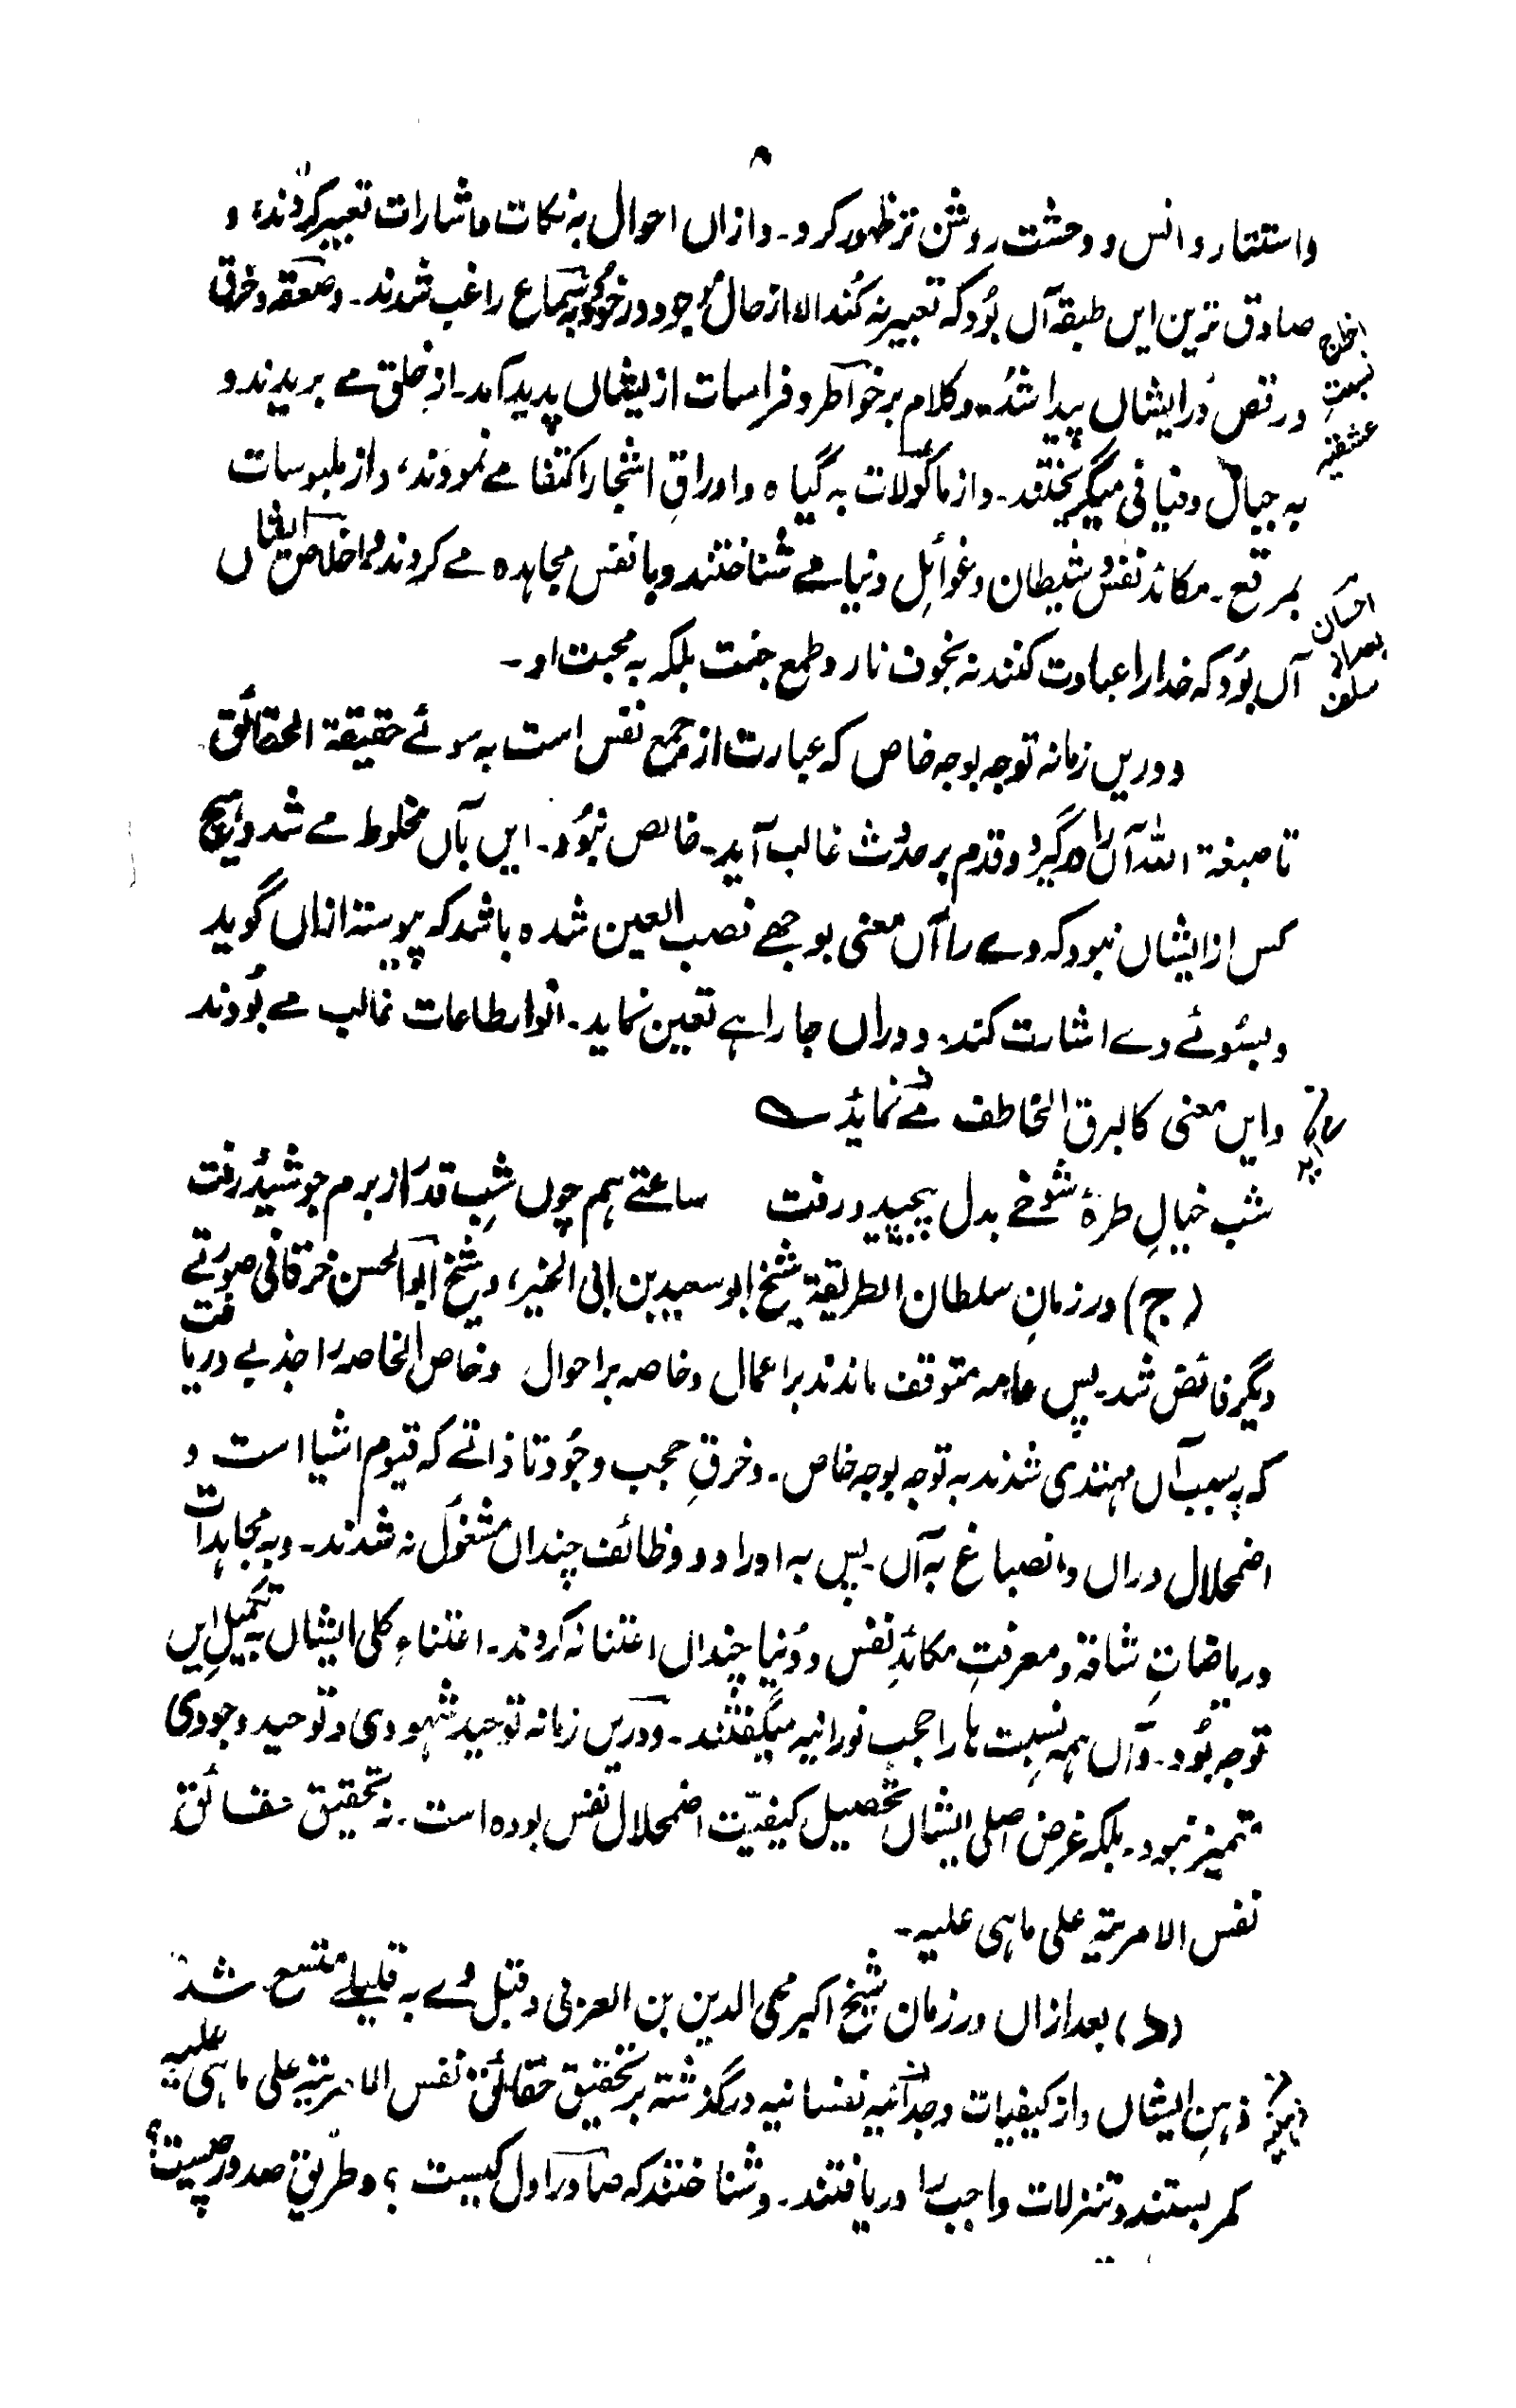 ۸
واستتار و انس و وحشت روشن تر ظہور کرد۔ و ازاں احوال بہ نکات و اشارات تعبیر کردند، و
صادق ترین ایں طبقہ آں بُود کہ تعبیر نہ کُند الا از حال موجود در خود و بہ سماع راغب شدند۔ و صعقہ و خرق
و رقص در ایشاں پیدا شُد۔ و کلام بر خواطر و فراسات از ایشاں پدید آمد۔ از خلق مے بریدند و
بہ جبال و فیافی میگریختند۔ و از ماکولات بہ گیاہ و اوراقِ اشجار اکتفا مے نمودند، و از ملبوسات
بمرقع۔ مکائد نفس و شیطان و غوائلِ دنیا مے شناختند و با نفس مجاہدہ مے کردند و اخلاص ایشاں
آں بُود کہ خدا را عبادت کنند نہ بخوف نار و طمع جنت بلکہ بہ محبت او۔
و دریں زمانہ توجہ بوجہ خاص کہ عبارت از جمع نفس است بہ سوئے حقیقۃ الحقائق
تا صبغۃ اللہ آں را در گیرد و قدم بر حدُوث غالب آید۔ خالص نبُود۔ ایں بآں مخلوط مے شد و ہیچ
کس از ایشاں نبود کہ وے را آں معنی بوجھے نصب العین شدہ باشد کہ پیوستہ ازاں گوید
و بسُوئے وے اشارت کند۔ و دراں جا راہے تعین نماید۔ انوار طاعات غالب مے بُودند
و ایں معنی کالبرق الخاطف مے نماید ؎
شب خیالِ طرۂ شوخے بدل پیچید و رفت ساعتے ہم چوں شبِ قدر از برم جوشید و رفت
(ج) در زمانِ سلطان الطریقۃ شیخ ابو سعید بن ابی الخیر، و شیخ ابو الحسن خرقانی صورتے
دیگر فائض شد۔ پس عامہ متوقف ماندند بر اعمال و خاصہ بر احوال و خاص الخاصہ را جذبے دریافت
کہ بسبب آں مہتدی شدند بہ توجہ بوجہ خاص۔ و خرقِ حجب وجُود تا ذاتے کہ قیوم اشیا است و
اضمحلال دراں و انصباغ بہ آں۔ پس بہ اوراد و وظائف چنداں مشغول نہ شدند۔ و بہ مجاہدات
و ریاضاتِ شاقہ و معرفتِ مکائدِ نفس و دُنیا چنداں اعتنا نہ کردند۔ اعتناءِ کلی ایشاں بہ تکمیلِ ایں
توجہ بُود۔ و آں ہمہ نسبت ہا را حجب نورانیہ میگفتند۔ و دریں زمانہ توحید شہودی و توحید وجودی
متمیز نبود۔ بلکہ غرض اصلی ایشاں تحصیل کیفیّت اضمحلال نفس بودہ است۔ نہ تحقیق حقائق
نفس الامریّۃ علی ماہی علیہ۔
(د) بعد ازاں در زمان شیخ اکبر محی الدین بن العربی و قبل وے بہ قلیلے متسع شد
ذہنِ ایشاں و از کیفیات وجدانیہ نفسانیہ درگذشتہ بر تحقیق حقائق نفس الامریّۃ علی ماہی علیہ
کمر بستند و تنزلات واجب را دریافتند۔ و شناختند کہ صادر اول کیست ؟ و طریقِ صدور چیست؟
نسبتِ
عشقیہ
احسان